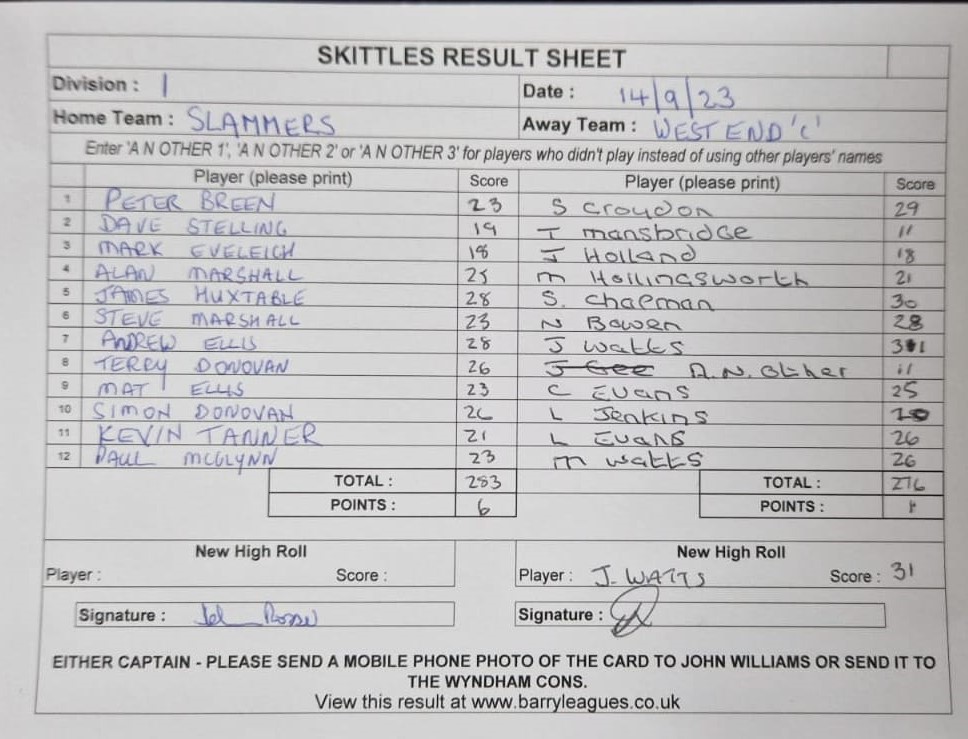 SKITTLES RESULT SHEET
Division : 1 Date : 14/9/23
Home Team : SLAMMERS Away Team : WEST END 'C'
Enter 'A N OTHER 1', 'A N OTHER 2' or 'A N OTHER 3' for players who didn't play instead of using other players' names
Player (please print) Score Player (please print) Score
1 PETER BREEN 23 S Croydon 29
2 DAVE STELLING 19 T mansbridge 11
3 MARK EVELEIGH 18 J Holland 18
4 ALAN MARSHALL 25 m Hollingsworth 21
5 JAMES HUXTABLE 28 S. Chapman 30
6 STEVE MARSHALL 23 N Bowen 28
7 ANDREW ELLIS 28 J watts 31
8 TERRY DONOVAN 26 J Gee A.N. Other 11
9 MAT ELLIS 23 C Evans 25
10 SIMON DONOVAN 26 L Jenkins 20
11 KEVIN TANNER 21 L Evans 26
12 PAUL MCGLYNN 23 m watts 26
TOTAL : 283 TOTAL : 276
POINTS : 6 POINTS : 1
New High Roll New High Roll
Player : Score : Player : J. WATTS Score : 31
Signature : Signature :
EITHER CAPTAIN - PLEASE SEND A MOBILE PHONE PHOTO OF THE CARD TO JOHN WILLIAMS OR SEND IT TO
THE WYNDHAM CONS.
View this result at www.barryleagues.co.uk